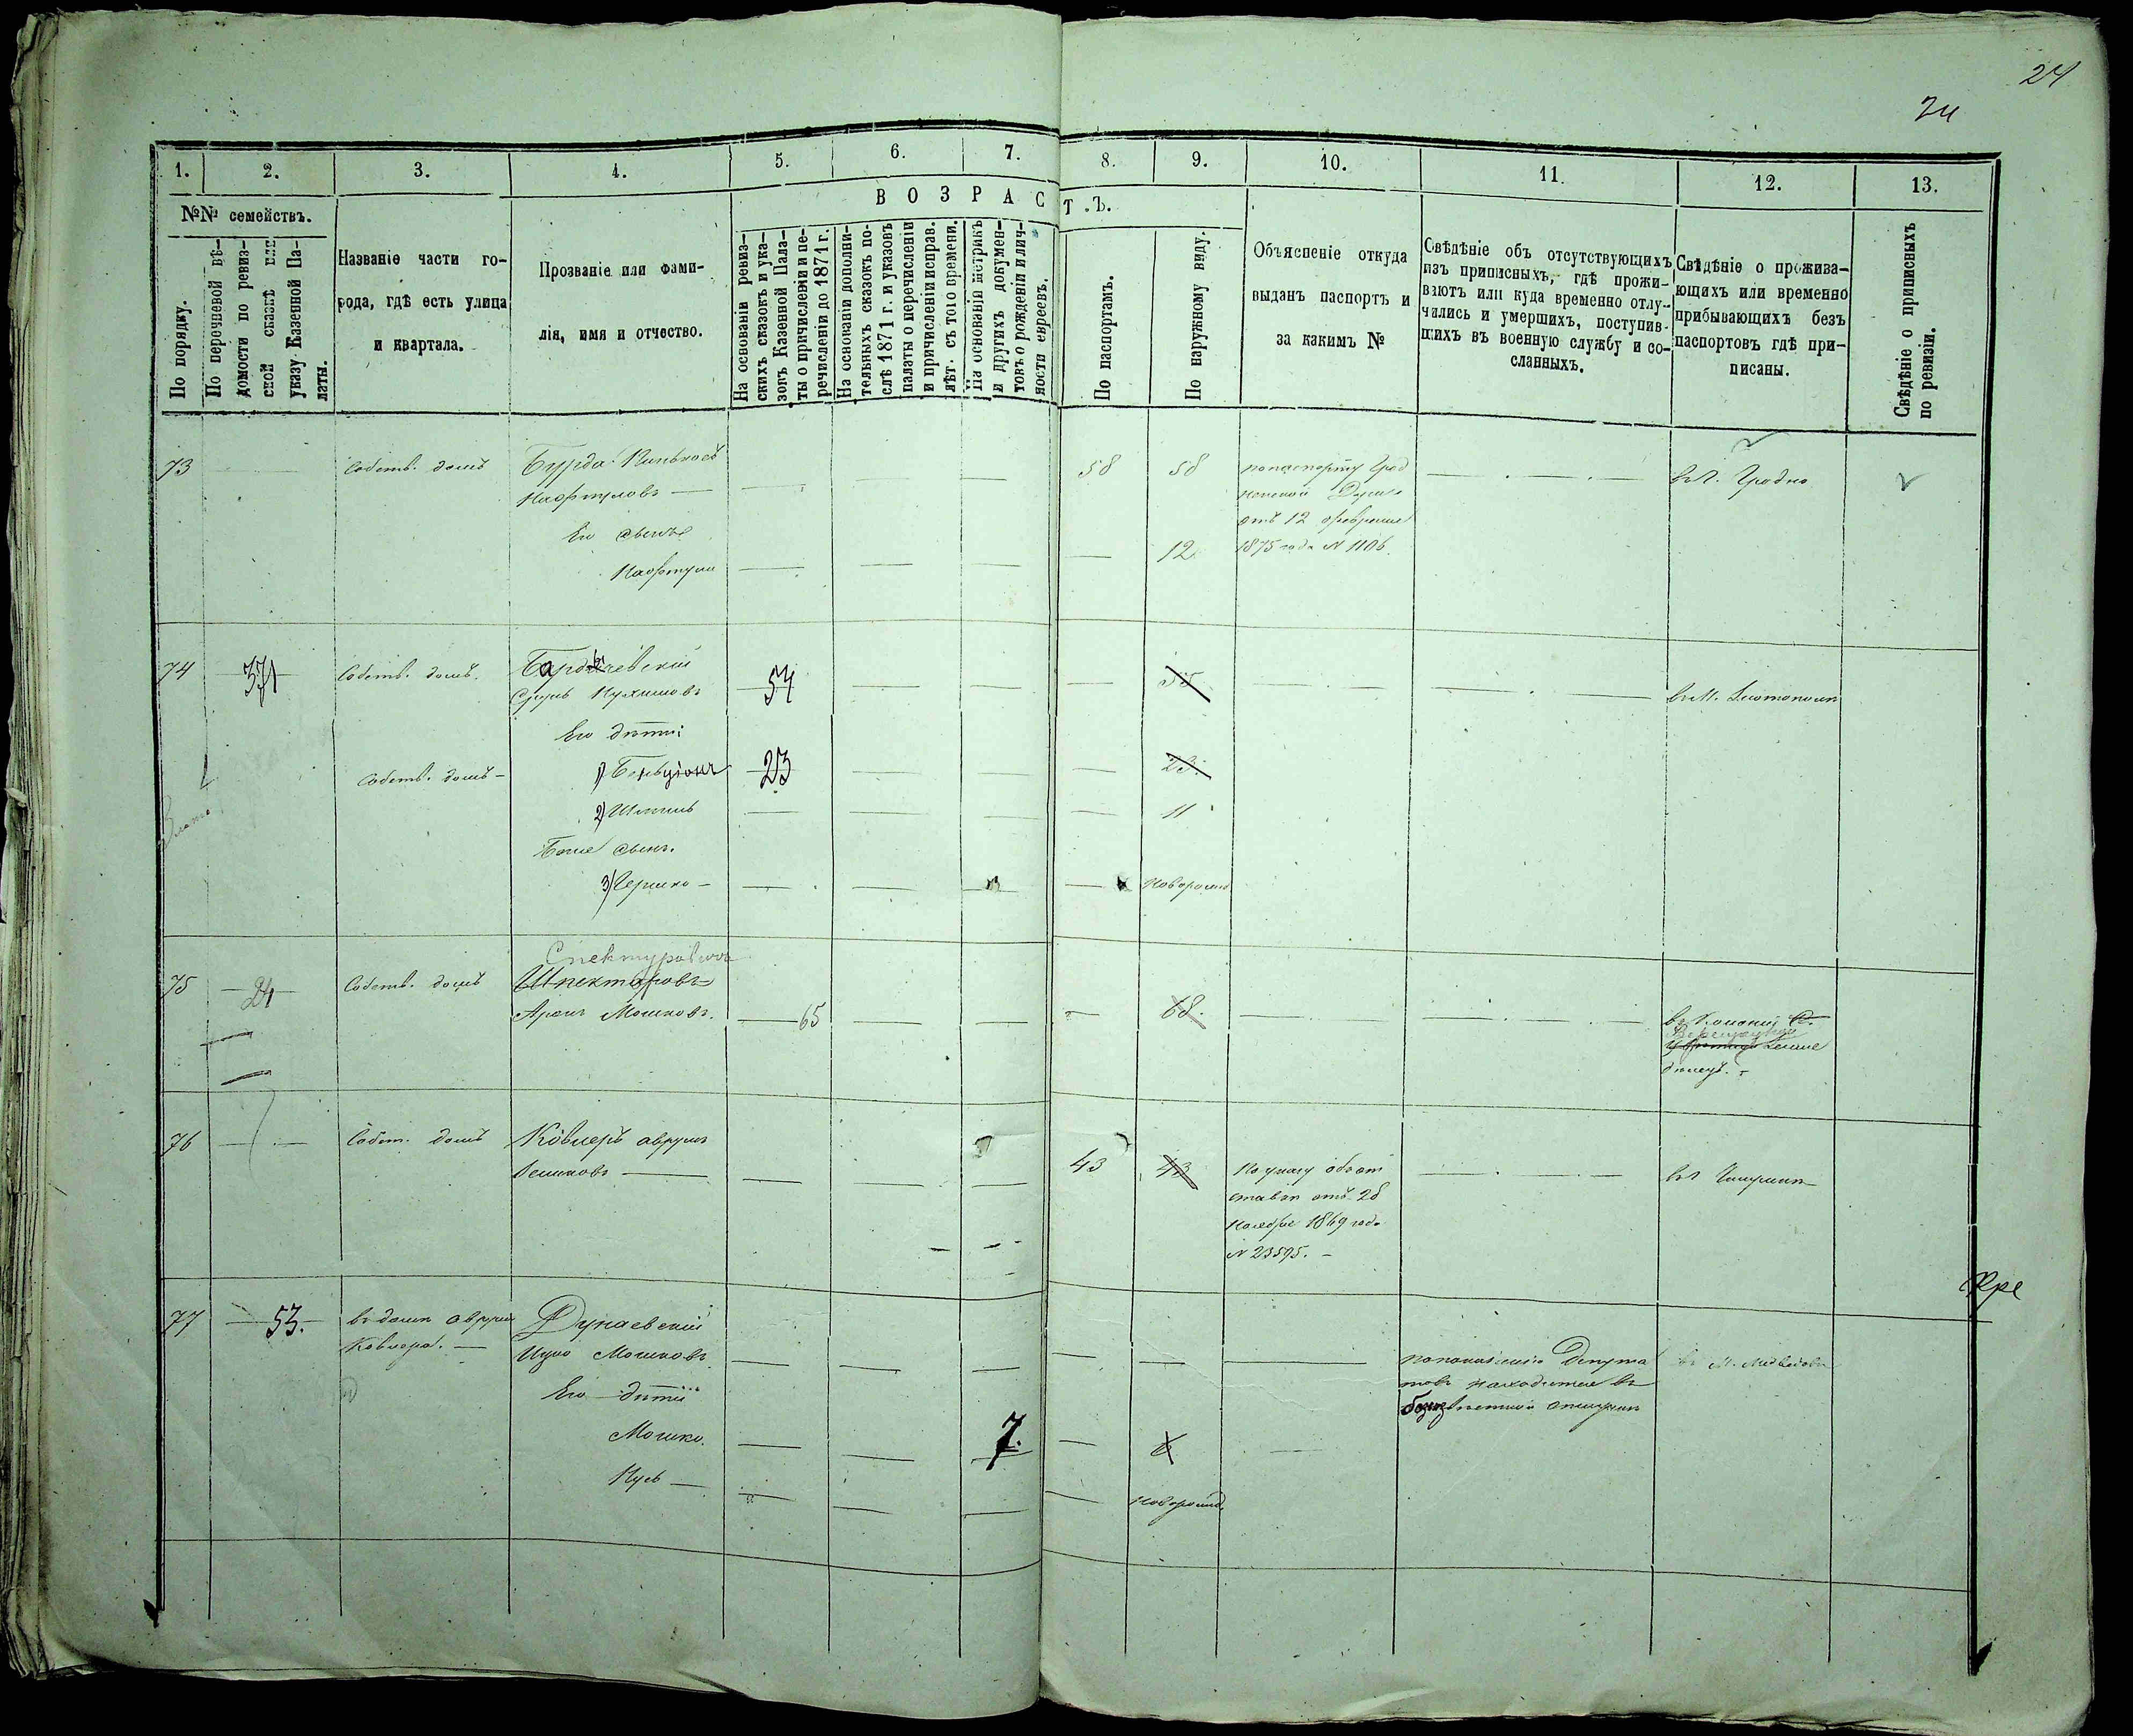 24
24
1.
2.
3.
4.
5.
6.
7.
8.
9.
10.
11.
12.
13.
№№ семействъ.
По порядку.
По перечневой вѣ-
домости по ревиз-
ской сказкѣ или
указу Казенной Па-
латы.
Названіе части го-
рода, гдѣ есть улица
и квартала.
Прозваніе или фами-
лія, имя и отчество.
ВОЗРАСТ.Ъ.
На основаніи ревиз-
скихъ сказокъ и ука-
зовъ Казенной Пала-
ты о причисленіи и пе-
речисленіи до 1871 г.
На основаніи дополни-
тельныхъ сказокъ по-
слѣ 1871 г. и указовъ
палаты о перечисленіи
и причисленіи исправ.
лѣт. съ того времени.
На основаніи метрикъ
и другихъ докумен-
товъ о рожденіи и лич-
ности евреевъ.
По паспортамъ.
По наружному виду.
Объясненіе откуда
выданъ паспортъ и
за какимъ №
Свѣдѣніе объ отсутствующихъ
изъ приписныхъ, гдѣ прожи-
ваютъ или куда временно отлу-
чились и умершихъ, поступив-
шихъ въ военную службу и со-
сланныхъ.
Свѣдѣніе о прожива-
ющихъ или временно
прибывающихъ безъ
паспортовъ гдѣ при-
писаны.
Свѣдѣніе о приписныхъ
по ревизіи.
73
Собств. домъ
Бурда
Нафтуловъ
58
58
Его сынъ
Нафтула
12
по паспорту Грод
ненской Думы
отъ 12 февраля
1875 года N 1106.
въ Г. Гродно
74
371
Собств. домъ.
Бардычевскій
Срулъ Нухимовъ
54
55
Его дѣти:
Собств. домъ -
1)
23
23.
2)
11
Его же сынъ.
3) Гершко -
Новорожд
въ М. Златополи
75
24
Собств. домъ
Спектуровичъ
Шпектаровъ
Аронъ Мошковъ.
65
68.
въ Колоніи
76
Собст. домъ
Ковлеръ Аврумъ
43
43
По указу объ от
ставкѣ отъ 28
Ноября 1869 года
N 23595. -
въ Г.
77
53.
въ домѣ Аврума
Ковлера. —
Дунаевскій
Ицко Мошковъ
Его дѣти
Мошко.
7.
6
Нусь —
Новорожд.
по показанію Депута
товъ находится въ
безизвѣстной отлучкѣ
въ М. Медведовк